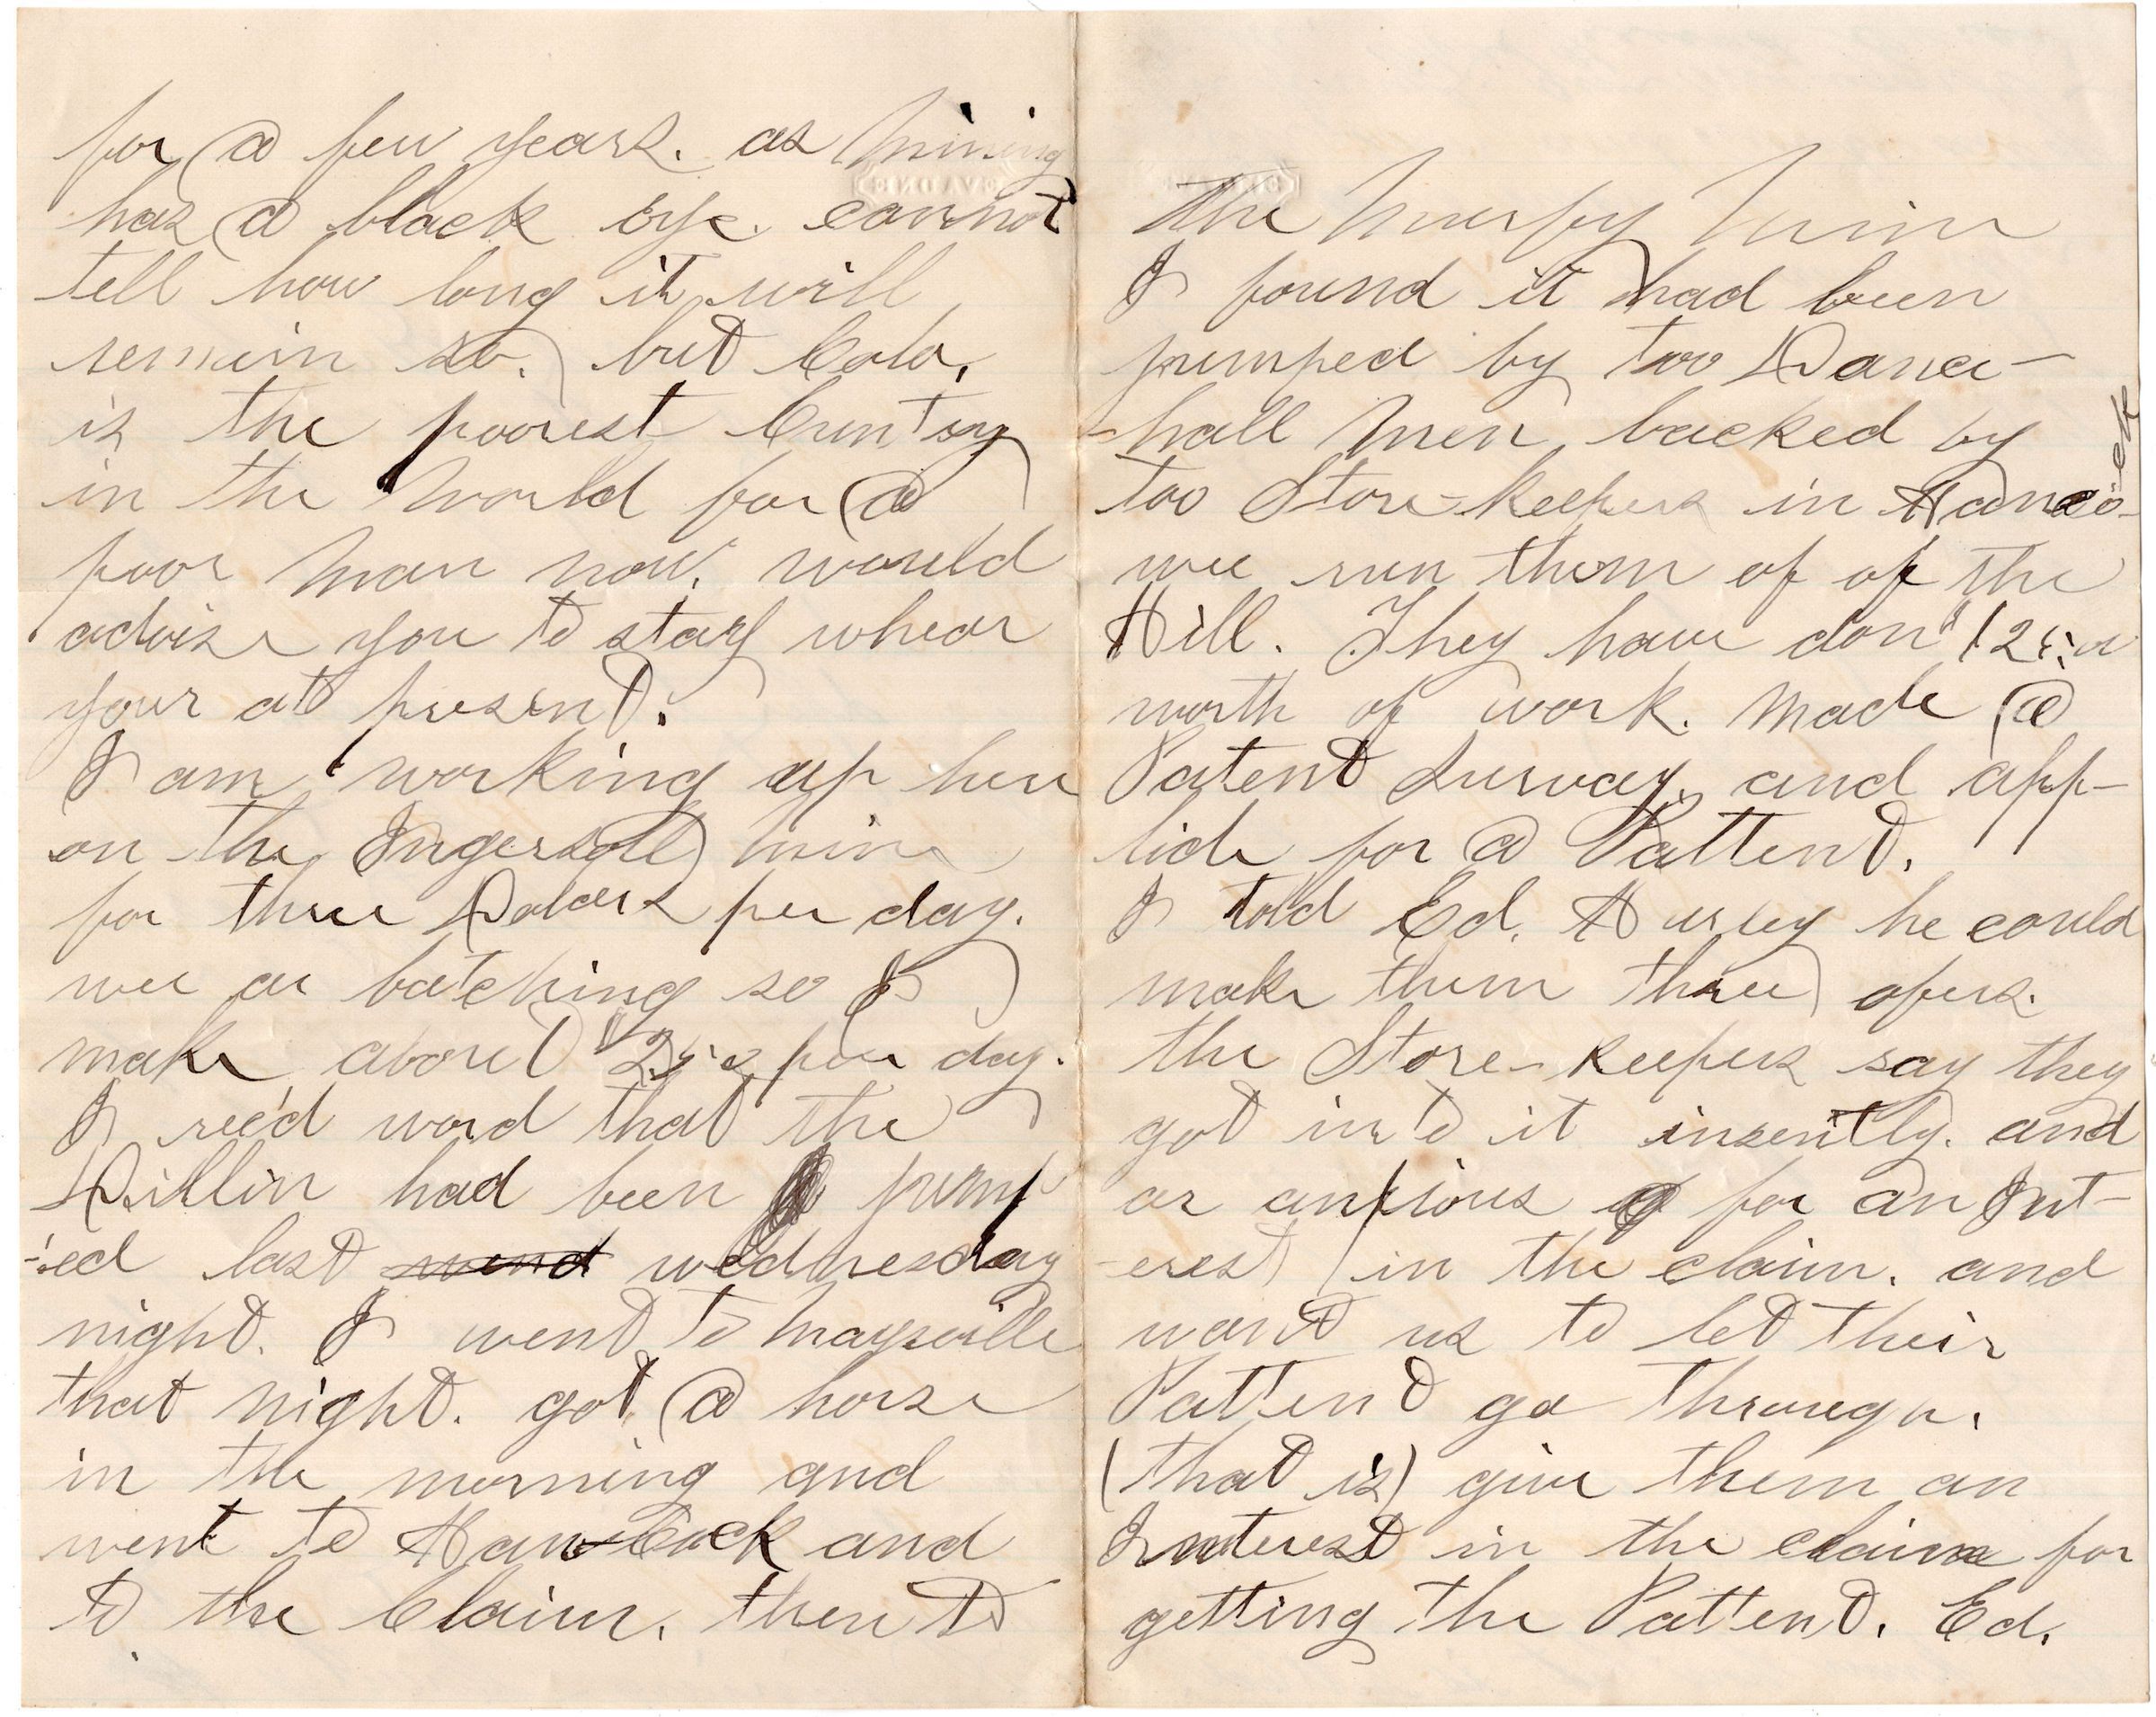 for a few years. as Mining
has a black eye. cannot
tell how long it will
remain so. but Colo.
is the poorest Cuntry
in the World for a
poor Man now. would
advise you to stay whear
your at present.
I am working up here
on the Ingersoll Mine
for three Dolars per day.
wee ar batching so I
make about per day.
I rec'd word that the
Dillin had been jump
-ed last wednesday
night. I went to Maysville
that night. got a horse
in the morning and
went to Hancock and
to the Claim. then to
the Murfy Mine
I found it had been
jumped by two Dance-
-hall Men, backed by
too Store-keepers in Hanco-
-ck
wee run them of of the
Hill. They have don
worth of work. Made a
Patent Survay, and app-
lide for a Pattent.
I told Ed. Hurley he could
make them three ofers.
the Store-keepers say they
got into it insently. and
ar anxious for an Int-
-erest in the claim. and
want us to let their
Pattent go through.
(that is) give them an
Interest in the claim for
getting the Pattent. Ed.